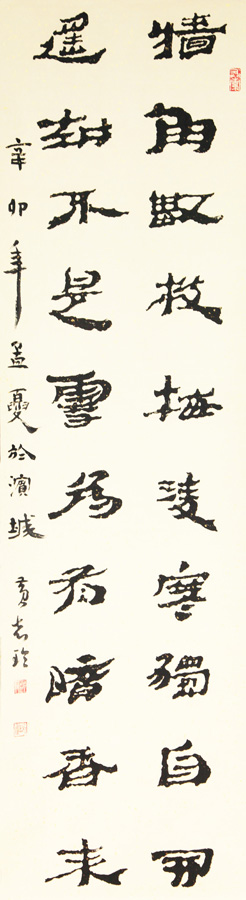 墙角数枝梅凌寒独自开
遥知不是雪为有暗香来
辛卯年孟夏於滨城 黄志玲